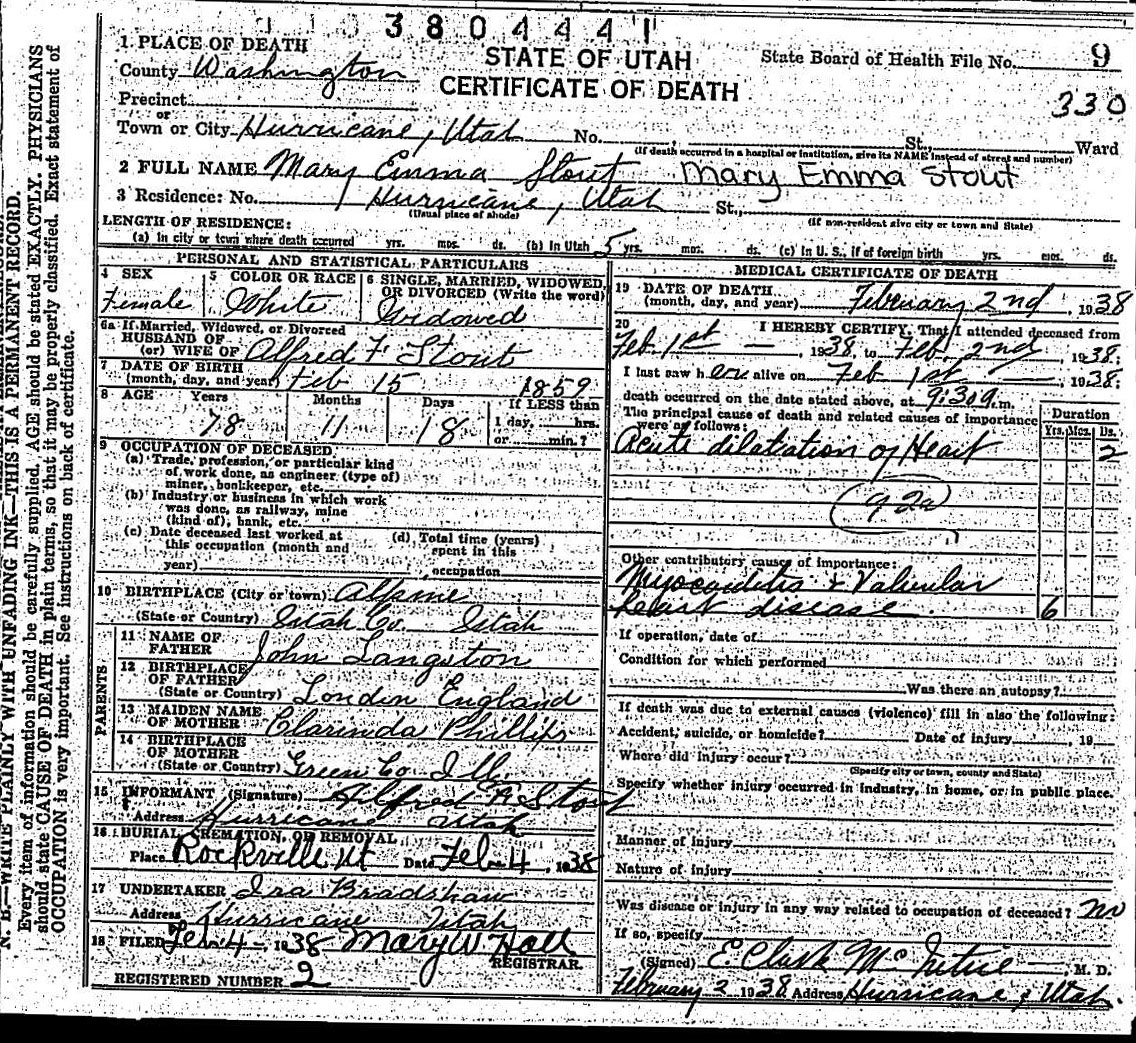 3804441
1. PLACE OF DEATH
STATE OF UTAH
CERTIFICATE OF DEATH
State Board of Health File No. 9
330
County Washington
Precinct
or
Town or City Hurricane, Utah No. St., Ward
(If death occurred in a hospital or institution, give its NAME instead of street and number)
2 FULL NAME Mary Emma Stout Mary Emma Stout
3 Residence: No. Hurricane, Utah St.,
(Usual place of abode) (If non-resident give city or town and State)
LENGTH OF RESIDENCE:
(a) In city or town where death occurred yrs. mos. ds. (b) In Utah 5 yrs. mos. ds. (c) In U. S., if of foreign birth yrs. mos. ds.
PERSONAL AND STATISTICAL PARTICULARS
4 SEX Female
5 COLOR OR RACE White
6 SINGLE, MARRIED, WIDOWED, OR DIVORCED (Write the word)
Widowed
6a If Married, Widowed, or Divorced
HUSBAND OF
(or) WIFE OF Alfred F Stout
7 DATE OF BIRTH
(month, day, and year) Feb 15 1859
8 AGE Years Months Days If LESS than
78 11 18 1 day, hrs.
or min.?
9 OCCUPATION OF DECEASED
(a) Trade, profession, or particular kind
of work done, as engineer (type of)
miner, bookkeeper, etc.
(b) Industry or business in which work
was done, as railway, mine
(kind of), bank, etc.
(c) Date deceased last worked at
this occupation (month and
year)
(d) Total time (years)
spent in this
occupation
10 BIRTHPLACE (City or town) Alpine
(State or Country) Utah Co. Utah
PARENTS
11 NAME OF
FATHER John Langston
12 BIRTHPLACE
OF FATHER
(State or Country) London England
13 MAIDEN NAME
OF MOTHER Clarinda Phillips
14 BIRTHPLACE
OF MOTHER
(State or Country) Green Co Ill.
15 INFORMANT (Signature) Alfred A. Stout
Address Hurricane Utah
16 BURIAL, CREMATION, OR REMOVAL
Place Rockville Ut Date Feb 4, 1938
17 UNDERTAKER Ira Bradshaw
Address Hurricane Utah
18 FILED Feb. 4 - 1938 Mary W. Hall
REGISTRAR.
REGISTERED NUMBER 2
MEDICAL CERTIFICATE OF DEATH
19 DATE OF DEATH
(month, day, and year) February 2nd, 1938
20 I HEREBY CERTIFY, That I attended deceased from
Feb. 1st, 1938, to Feb. 2nd, 1938;
I last saw her alive on Feb 1st, 1938;
death occurred on the date stated above, at 9:30 a.m.
The principal cause of death and related causes of importance
were as follows:
Duration
Yrs. Mos. Ds.
Acute dilatation of Heart 2
(92a)
Other contributory causes of importance:
Myocarditis & Valvular
heart disease. 6
If operation, date of
Condition for which performed
Was there an autopsy?
If death was due to external causes (violence) fill in also the following:
Accident, suicide, or homicide? Date of injury , 19
Where did injury occur?
(Specify city or town, county and State)
Specify whether injury occurred in industry, in home, or in public place.
Manner of injury
Nature of injury
Was disease or injury in any way related to occupation of deceased? no
If so, specify
(Signed) E. Clark McIntire M. D.
February 2 1938 Address Hurricane, Utah.
N. B.—WRITE PLAINLY WITH UNFADING INK—THIS IS A PERMANENT RECORD.
Every item of information should be carefully supplied. AGE should be stated EXACTLY. PHYSICIANS
should state CAUSE OF DEATH in plain terms, so that it may be properly classified. Exact statement of
OCCUPATION is very important. See instructions on back of certificate.